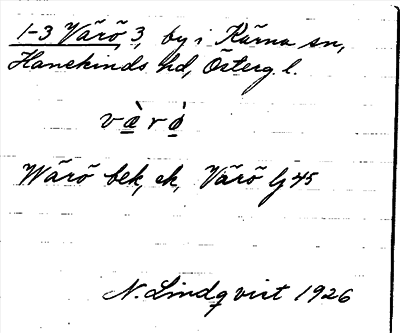 1-3 Värö 3, by i Kärna sn,
Hanekinds hd, Österg. l.
vä̀rò̤
Wärö bek, ek, Värö lj 45
N. Lindqvist 1926